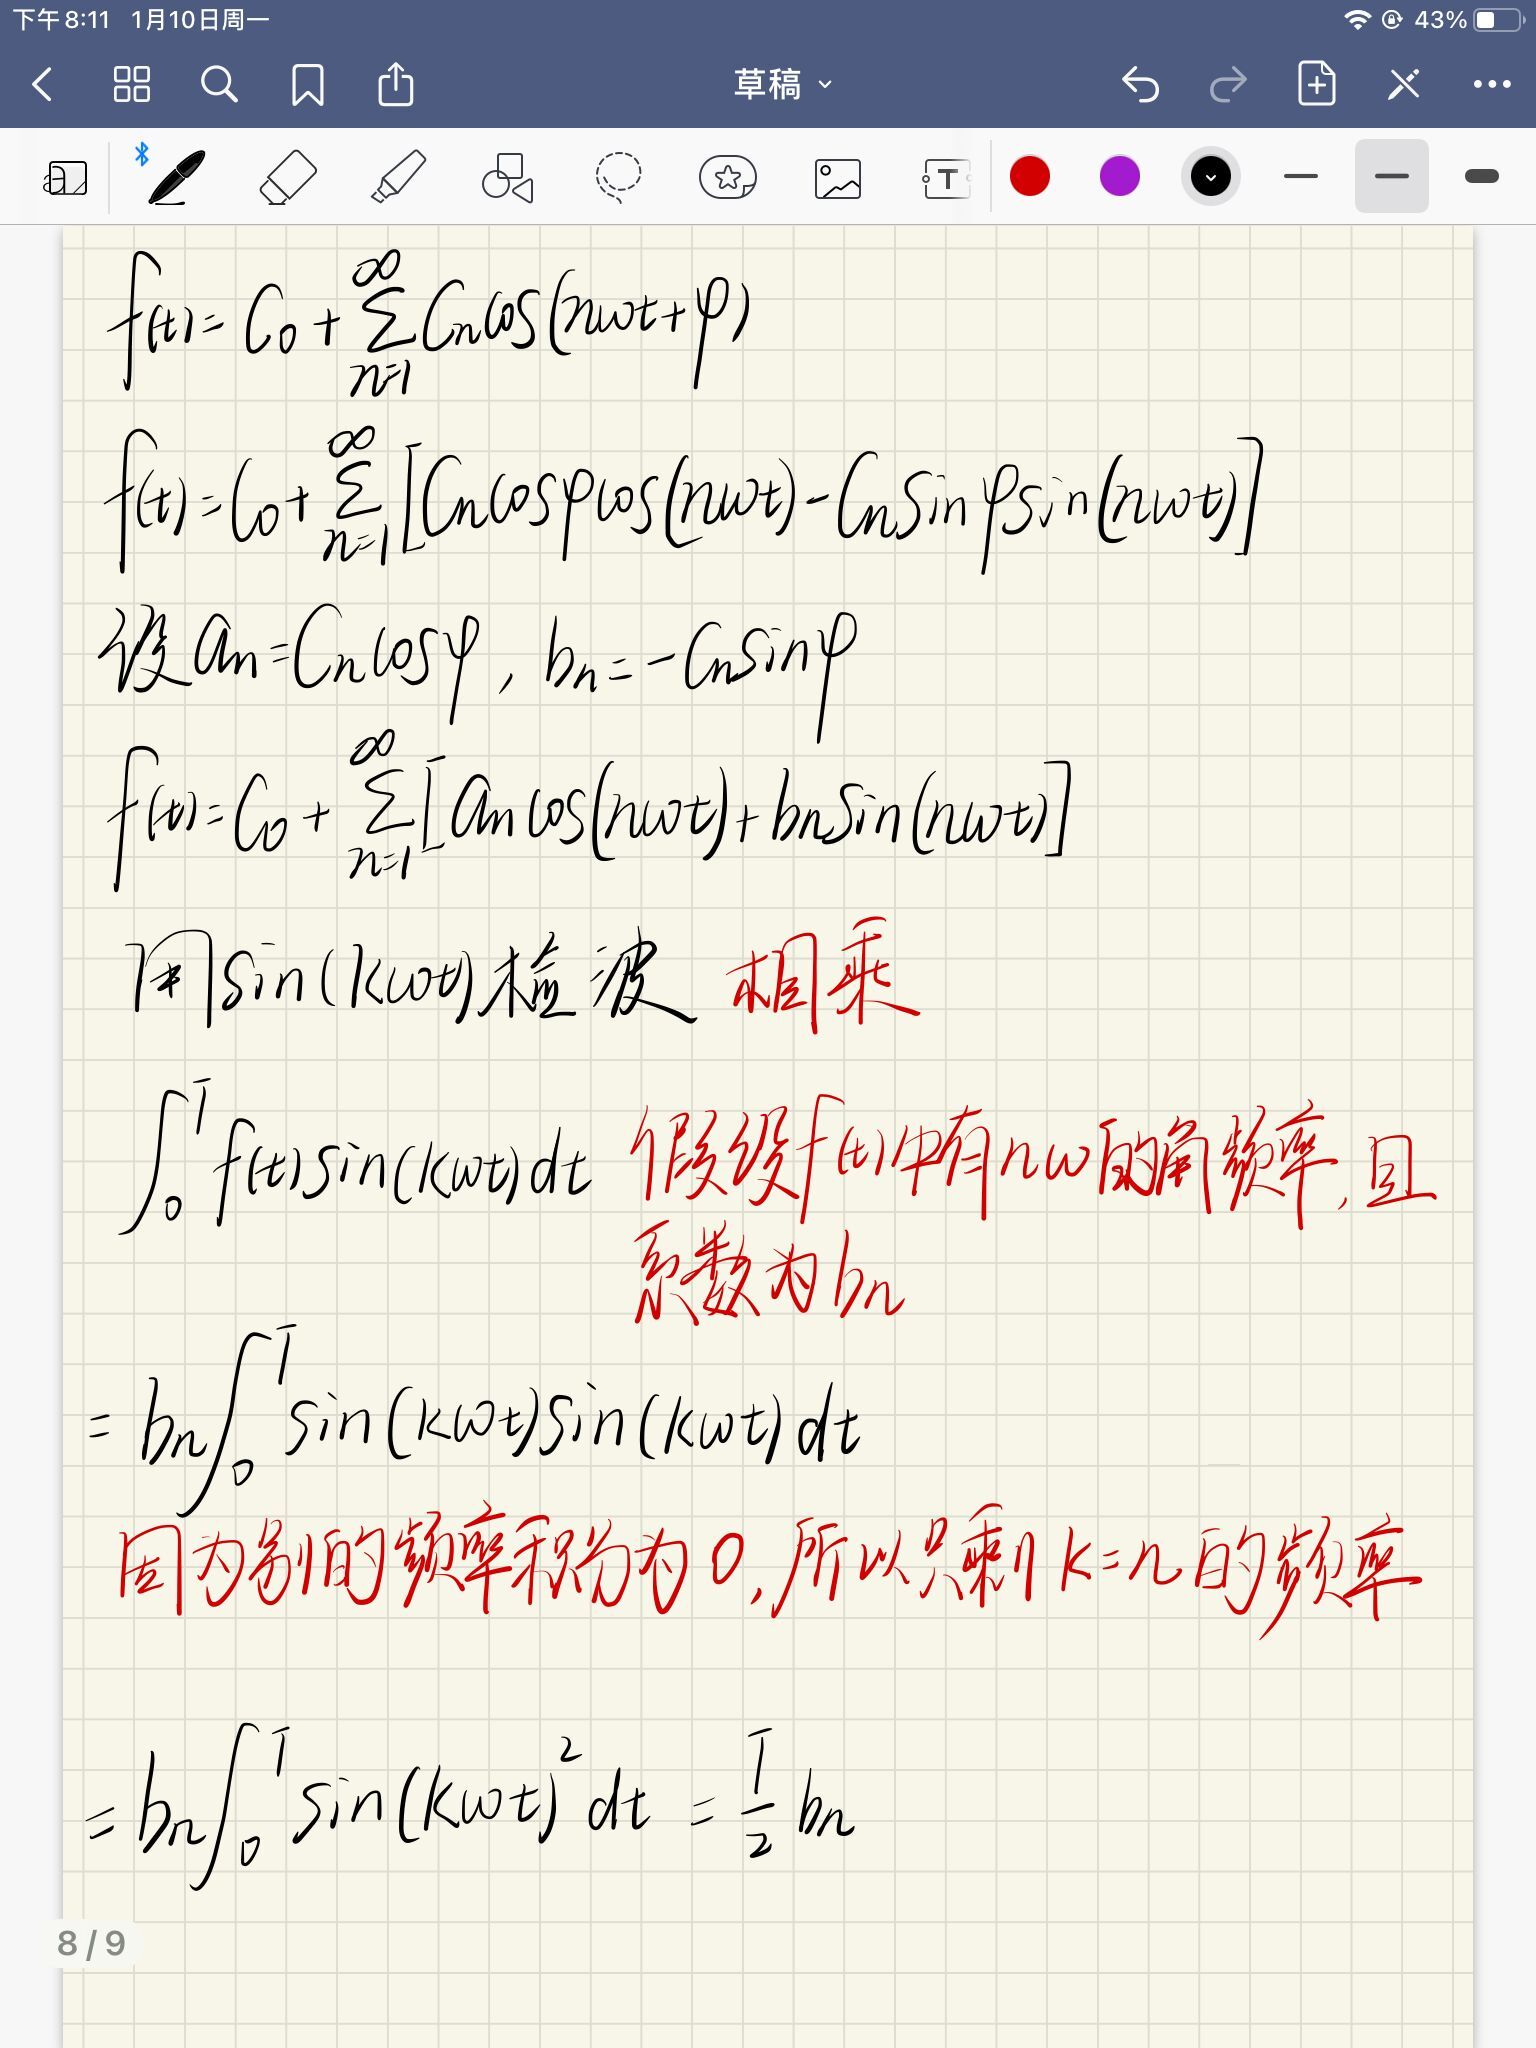 下午8:11 1月10日周一
43%
草稿
T
f(t)=C₀+∑_{n=1}^{∞}Cₙcos(nωt+φ)
f(t)=C₀+∑_{n=1}^{∞}[Cₙcosφcos(nωt)-Cₙsinφsin(nωt)]
设aₙ=Cₙcosφ, bₙ=-Cₙsinφ
f(t)=C₀+∑_{n=1}^{∞}[aₙcos(nωt)+bₙsin(nωt)]
用sin(kωt)检波 相乘
∫₀ᵀf(t)sin(kωt)dt 假设f(t)中有nω的角频率,且
系数为bₙ
=bₙ∫₀ᵀsin(kωt)sin(kωt)dt
因为别的频率积分为0,所以只剩k=n的频率
=bₙ∫₀ᵀsin(kωt)²dt=T/2 bₙ
8/9